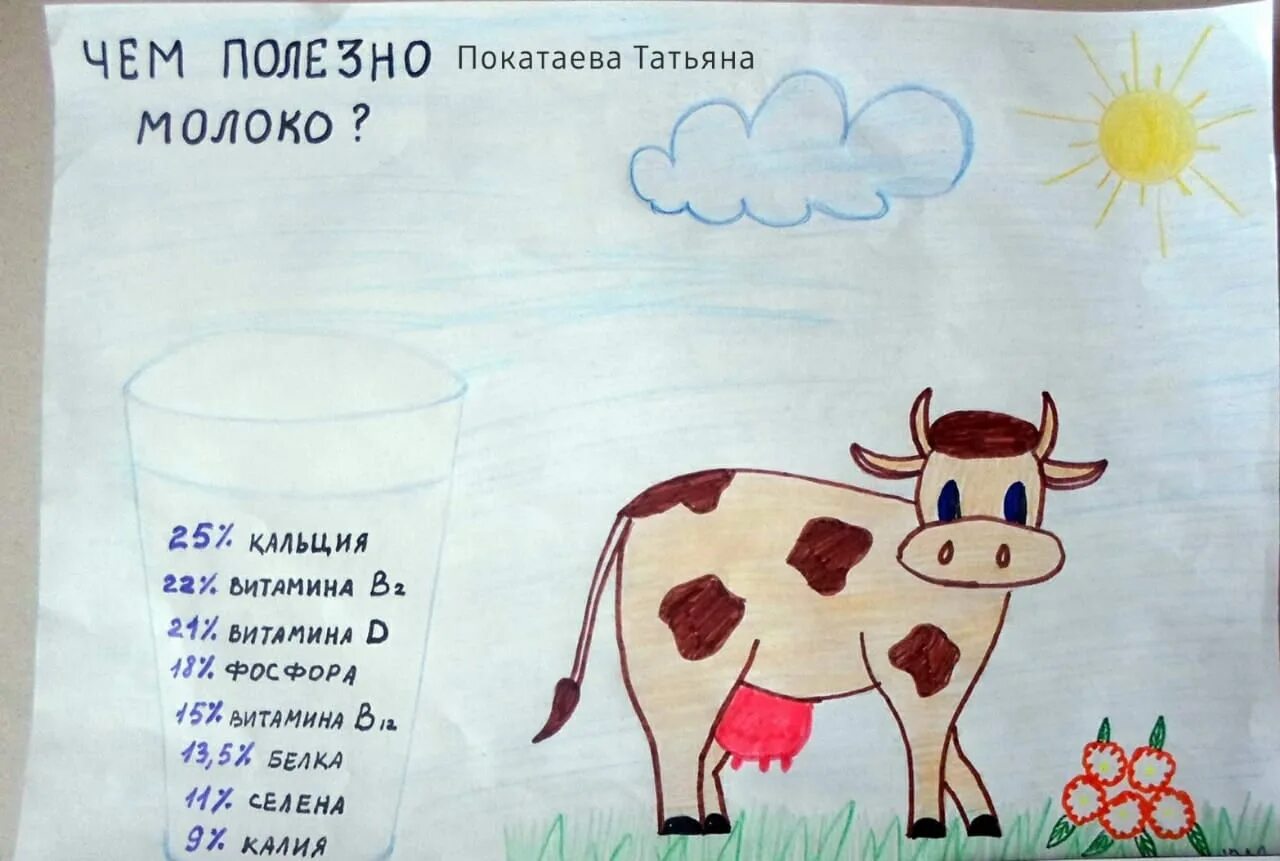 ЧЕМ ПОЛЕЗНО Покатаева Татьяна
МОЛОКО?
25% КАЛЬЦИЯ
22% ВИТАМИНА B2
21% ВИТАМИНА D
18% ФОСФОРА
15% ВИТАМИНА B12
13,5% БЕЛКА
11% СЕЛЕНА
9% КАЛИЯ